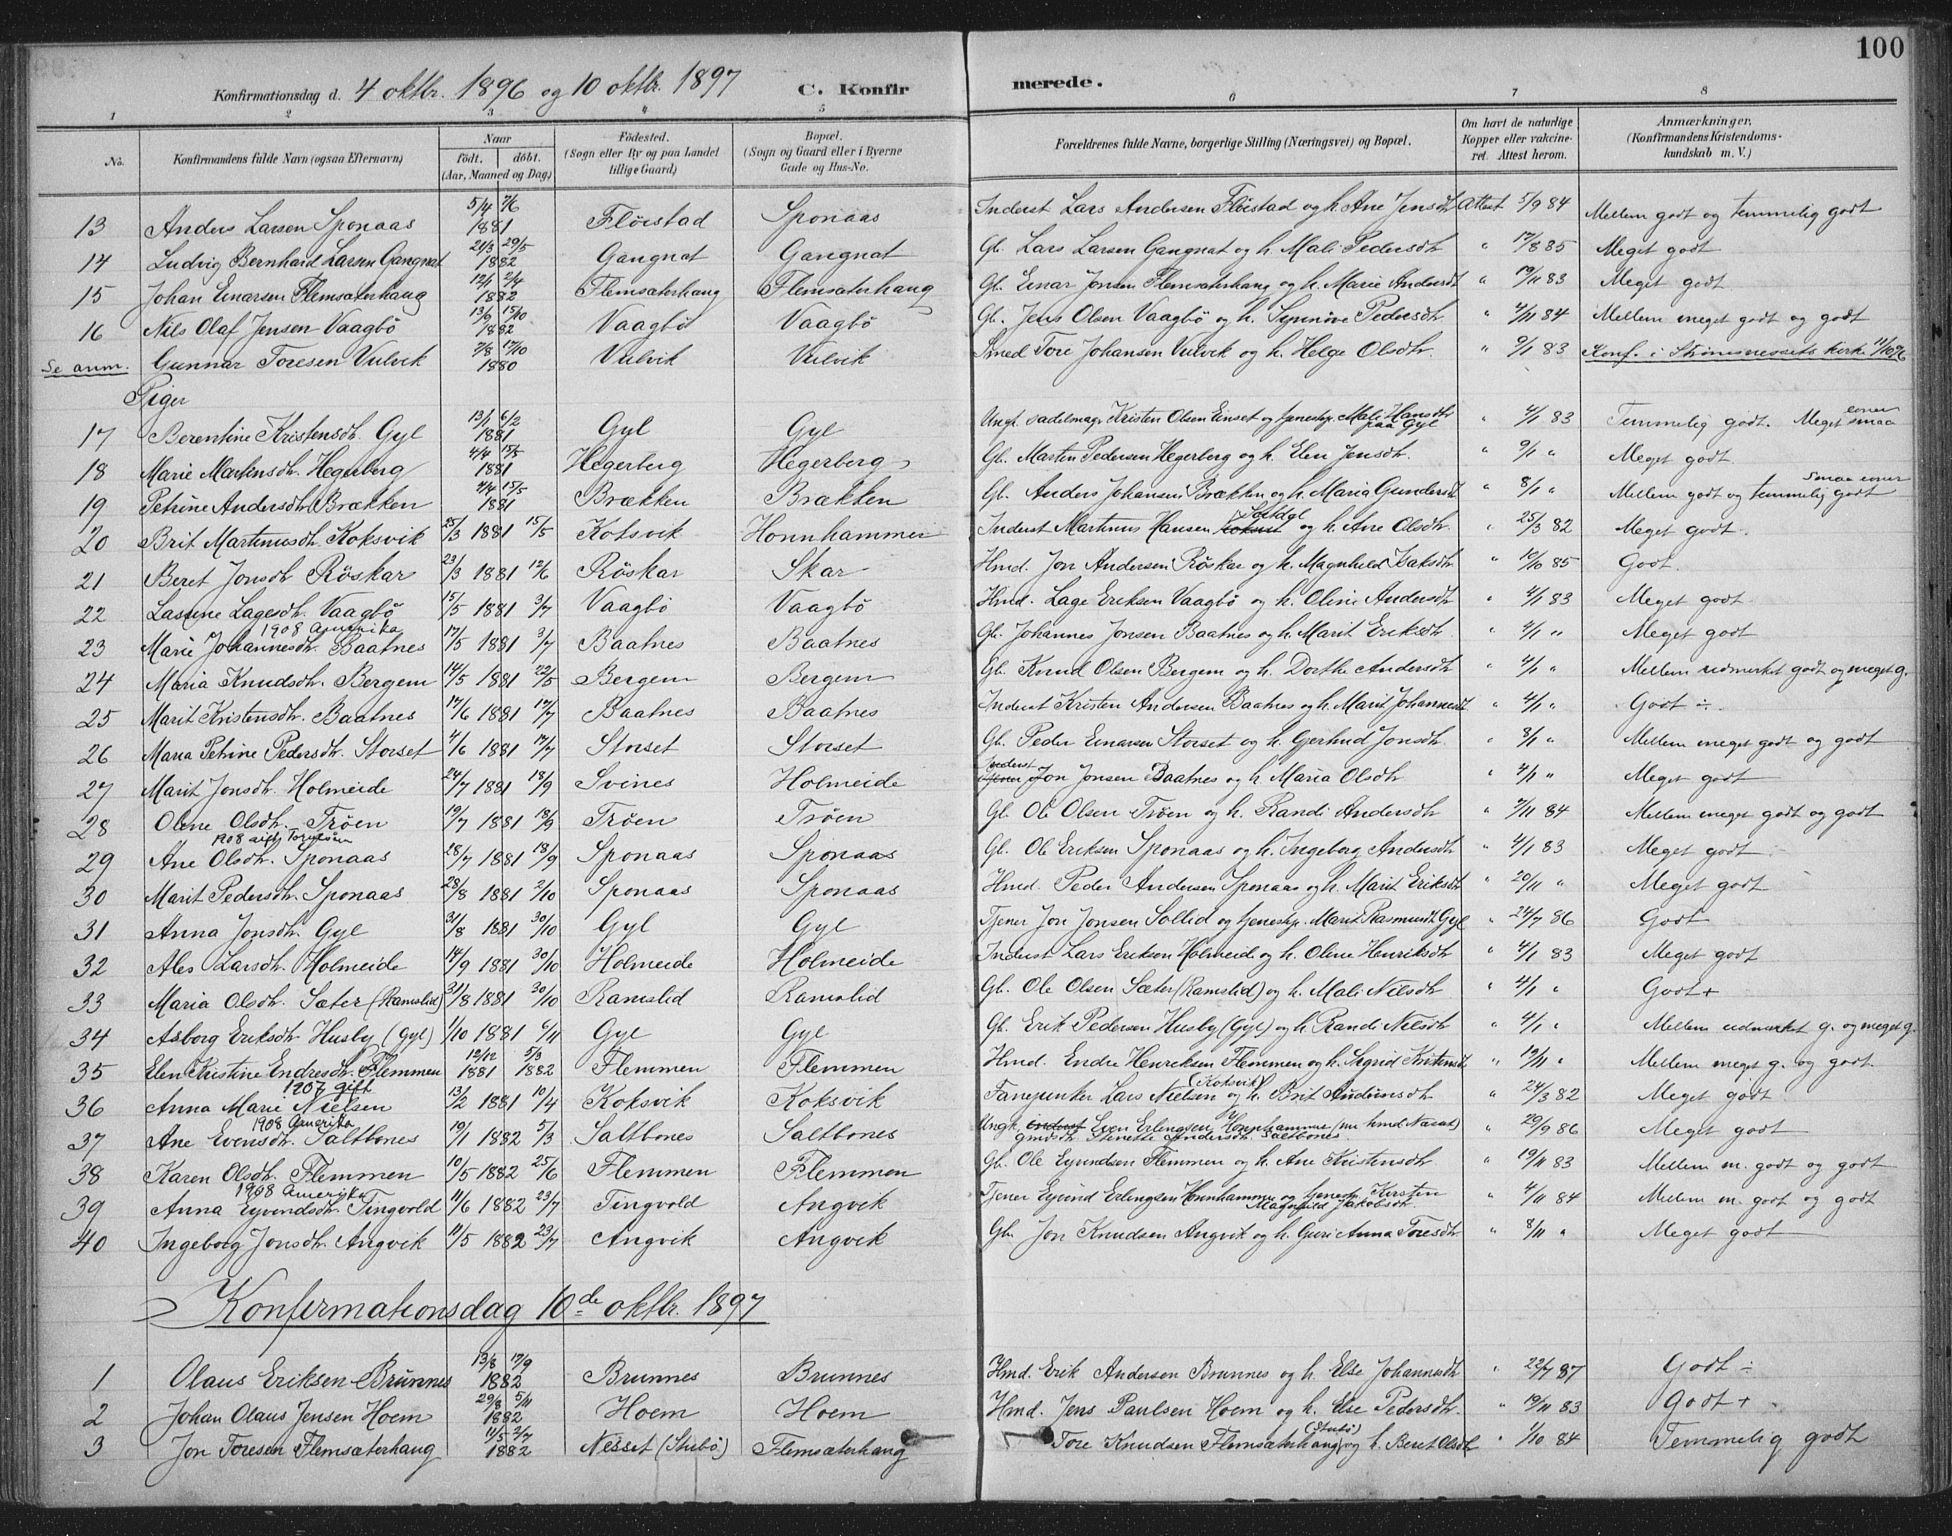 100
Konfirmationsdag d. 4 oktbr. 1896 og 10 oktbr. 1897 C. Konfir merede.
1 2 3 4 5 6 7 8
No. Konfirmandens fulde Navn (ogsaa Efternavn) Naar födt. döbt. (Aar, Maaned og Dag) Födested. (Sogn eller By og paa Landet tillige Gaard) Bopæl. (Sogn og Gaard eller i Byerne Gade og Hus-No. Forældrenes fulde Navne, borgerlige Stilling (Næringsvei) og Bopæl. Om havt de naturlige Kopper eller vakcineret. Attest herom. Anmærkninger. (Konfirmandens Kristendomskundskab m. V.)
13 Anders Larsen Sponaas 5/4 7/6 1881 Fløistad Sponaas Inderst Lars Andersen Fløistad og h. Ane Jensdtr Attest 5/9 84 Mellem godt og temmelig godt
14 Ludvig Bernhard Larsen Gangnat 21/3 29/5 1882 Gangnat Gangnat Gb. Lars Larsen Gangnat og h. Mali Pedersdtr " 17/8 85 Meget godt
15 Johan Einarsen Flemsæterhaug 12/1 2/4 1882 Flemsæterhaug Flemsæterhaug Gb. Einar Jonsen Flemsæterhaug og h. Marie Andersdt " 19/11 83 Meget godt
16 Nils Olaf Jensen Vaagbö 13/9 15/10 1882 Vaagbö Vaagbö Gb. Jens Olsen Vaagbö og h. Synnöve Pedersdtr " 4/11 84 Mellem meget godt og godt
Se anm. Gunnar Toresen Vulvik 7/8 17/10 1880 Vulvik Vulvik Smed Tore Johansen Vulvik og h. Helge Olsdtr. " 9/1 83 Konf. i Strømsnessets kirke 11/10 96
Piger
17 Berentine Kristensdtr. Gyl 13/1 6/2 1881 Gyl Gyl Ungk. sadelmag. Kristen Olsen Einset og tjenestep. Mali Hansdtr paa Gyl " 4/1 83 Temmelig godt. Meget smaa evner
18 Marie Martensdtr. Hegerberg 4/4 15/5 1881 Hegerberg Hegerberg Gb. Marten Pedersen Hegerberg og h. Elen Jensdtr. " 9/1 " Meget godt
19 Petrine Andersdtr. Brækken 4/4 15/5 1881 Brækken Brækken Gb. Anders Johansen Brækken og h. Maria Gundersdt " 8/1 " Mellem godt og temmelig godt smaa evner
20 Brit Martinusdtr. Koksvik 25/3 1881 15/5 Koksvik Honnhammer Inderst Martinus Hansen Koksvik og h. Ane Olsdtr. " 25/3 82 Meget godt.
21 Beret Jonsdtr Röskar 23/3 1881 12/6 Röskar Skar Hmd. Jon Andersen Röskar og h. Magnhild Isaksdtr. " 10/10 85 Godt.
22 Lasine Lagesdtr. Vaagbö 15/5 1881 3/7 Vaagbö Vaagbö Hmd. Lage Eriksen Vaagbö og h. Oline Andersdtr " 4/1 83 Meget godt
1908 Amerika
23 Marie Johannesdtr. Baatnes 17/5 1881 3/7 Baatnes Baatnes Gb. Johannes Jonsen Baatnes og h. Marit Eriksdtr. " 4/1 " Meget godt
24 Maria Knudsdtr. Bergem 14/5 1881 22/5 Bergem Bergem Gb. Knud Olsen Bergem og h. Dorthe Andersdtr " 4/1 " Mellem udmerket godt og meget g.
25 Marit Kristensdtr. Baatnes 17/6 1881 17/7 Baatnes Baatnes Inderst Kristen Andersen Baatnes og h. Marit Johannesdt " 4/1 " Godt ÷
26 Maria Petrine Pedersdtr. Storset 4/6 1881 17/7 Storset Storset Gb. Peder Einarsen Storset og h. Gjertrud Jonsdtr. " 8/1 " Mellem meget godt og godt
27 Marit Jonsdtr. Holmeide 24/7 1881 18/9 Svines Holmeide Inderst Jon Jonsen Baatnes og h. Maria Olsdtr. " 4/1 " Meget godt
28 Oline Olsdtr. Tröen 19/7 1881 18/9 Tröen Tröen Gb. Ole Olsen Tröen og h. Randi Andersdtr " 7/11 84 Mellem meget godt og godt
29 Ane Olsdtr. Sponaas 28/7 1881 18/9 Sponaas Sponaas Gb. Ole Eriksen Sponaas og h. Ingeborg Andersdtr " 4/1 83 Meget godt
30 Marit Pedersdtr. Sponaas 28/8 1881 2/10 Sponaas Sponaas Hmd. Peder Andersen Sponaas og h. Marit Eriksdtr " 20/11 " Meget godt
31 Anna Jonsdtr. Gyl 31/8 1881 30/10 Gyl Gyl Tjener Jon Jonsen Sollid og tjenestep. Marit Rasmusdt. Gyl " 24/7 86 Godt
32 Ales Larsdtr. Holmeide 14/9 1881 30/10 Holmeide Holmeide Inderst Lars Eriksen Holmeid og h. Oline Henriksdtr " 4/1 83 Meget godt
33 Maria Olsdtr. Sæter (Ramslid) 31/8 1881 30/10 Ramslid Ramslid Gb. Ole Olsen Sæter (Ramslid) og h. Mali Nilsdtr " 4/1 " Godt +
34 Asborg Eriksdtr Husby (Gyl) 1/10 1881 6/11 Gyl Gyl Gb. Erik Pedersen Husby (Gyl) og h. Randi Nilsdtr " 4/1 " Mellem udmerket g. og meget g.
35 Elen Kristine Endresdtr. Flemmen 12/12 1881 5/3 1882 Flemmen Flemmen Hmd. Endre Henriksen Flemmen og h. Sigrid Kristensdt " 19/11 " Mellem meget g. og godt.
1907 gift
36 Anna Marie Nielsen 13/2 1881 10/4 Koksvik Koksvik Fanejunker Lars Nielsen (Koksvik) og h. Brit Andersdtr " 24/3 82 Meget godt
1908 Amerika
37 Ane Evensdtr. Saltbones 19/1 1882 5/3 Saltbones Saltbones Ungk. inderst Even Erlingsen Honnhammer (nu hmd Naast) " 29/9 86 Meget godt
38 Karen Olsdtr. Flemmen 10/5 1882 25/6 Flemmen Flemmen Gb. Ole Eyvindsen Flemmen og h. Ane Kristensdtr " 19/11 83 Mellem m. godt og godt
1908 Amerika
39 Anna Eyvindsdtr. Tingvold 11/6 1882 23/7 Tingvold Angvik Tjener Eyvind Erlingsen Honnhammer og tjenestep. Kirsten Magnhild Jakobsdtr. " 4/11 84 Mellem m. godt og godt
40 Ingeborg Jonsdtr. Angvik 11/5 1882 23/7 Angvik Angvik Gb. Jon Knudsen Angvik og h. Guri Anna Toresdtr " 8/11 " Meget godt
Konfirmationsdag 10de oktbr. 1897
1 Olaus Eriksen Brunnes 13/8 17/9 1882 Brunnes Brunnes Hmd. Erik Andersen Brunnes og h. Else Johannesdtr " 22/7 87 Godt ÷
2 Johan Olaus Jensen Hoem 29/8 5/11 1882 Hoem Hoem Hmd. Jens Paulsen Hoem og h. Else Pedersdtr. " 19/11 83 Godt +
3 Jon Toresen Flemsæterhaug 11/5 2/7 1882 Nesset (Stubö) Flemsæterhaug Tore Knudsen Flemsæterhaug (Stubö) og h. Beret Olsdt " 1/10 84 Temmelig godt